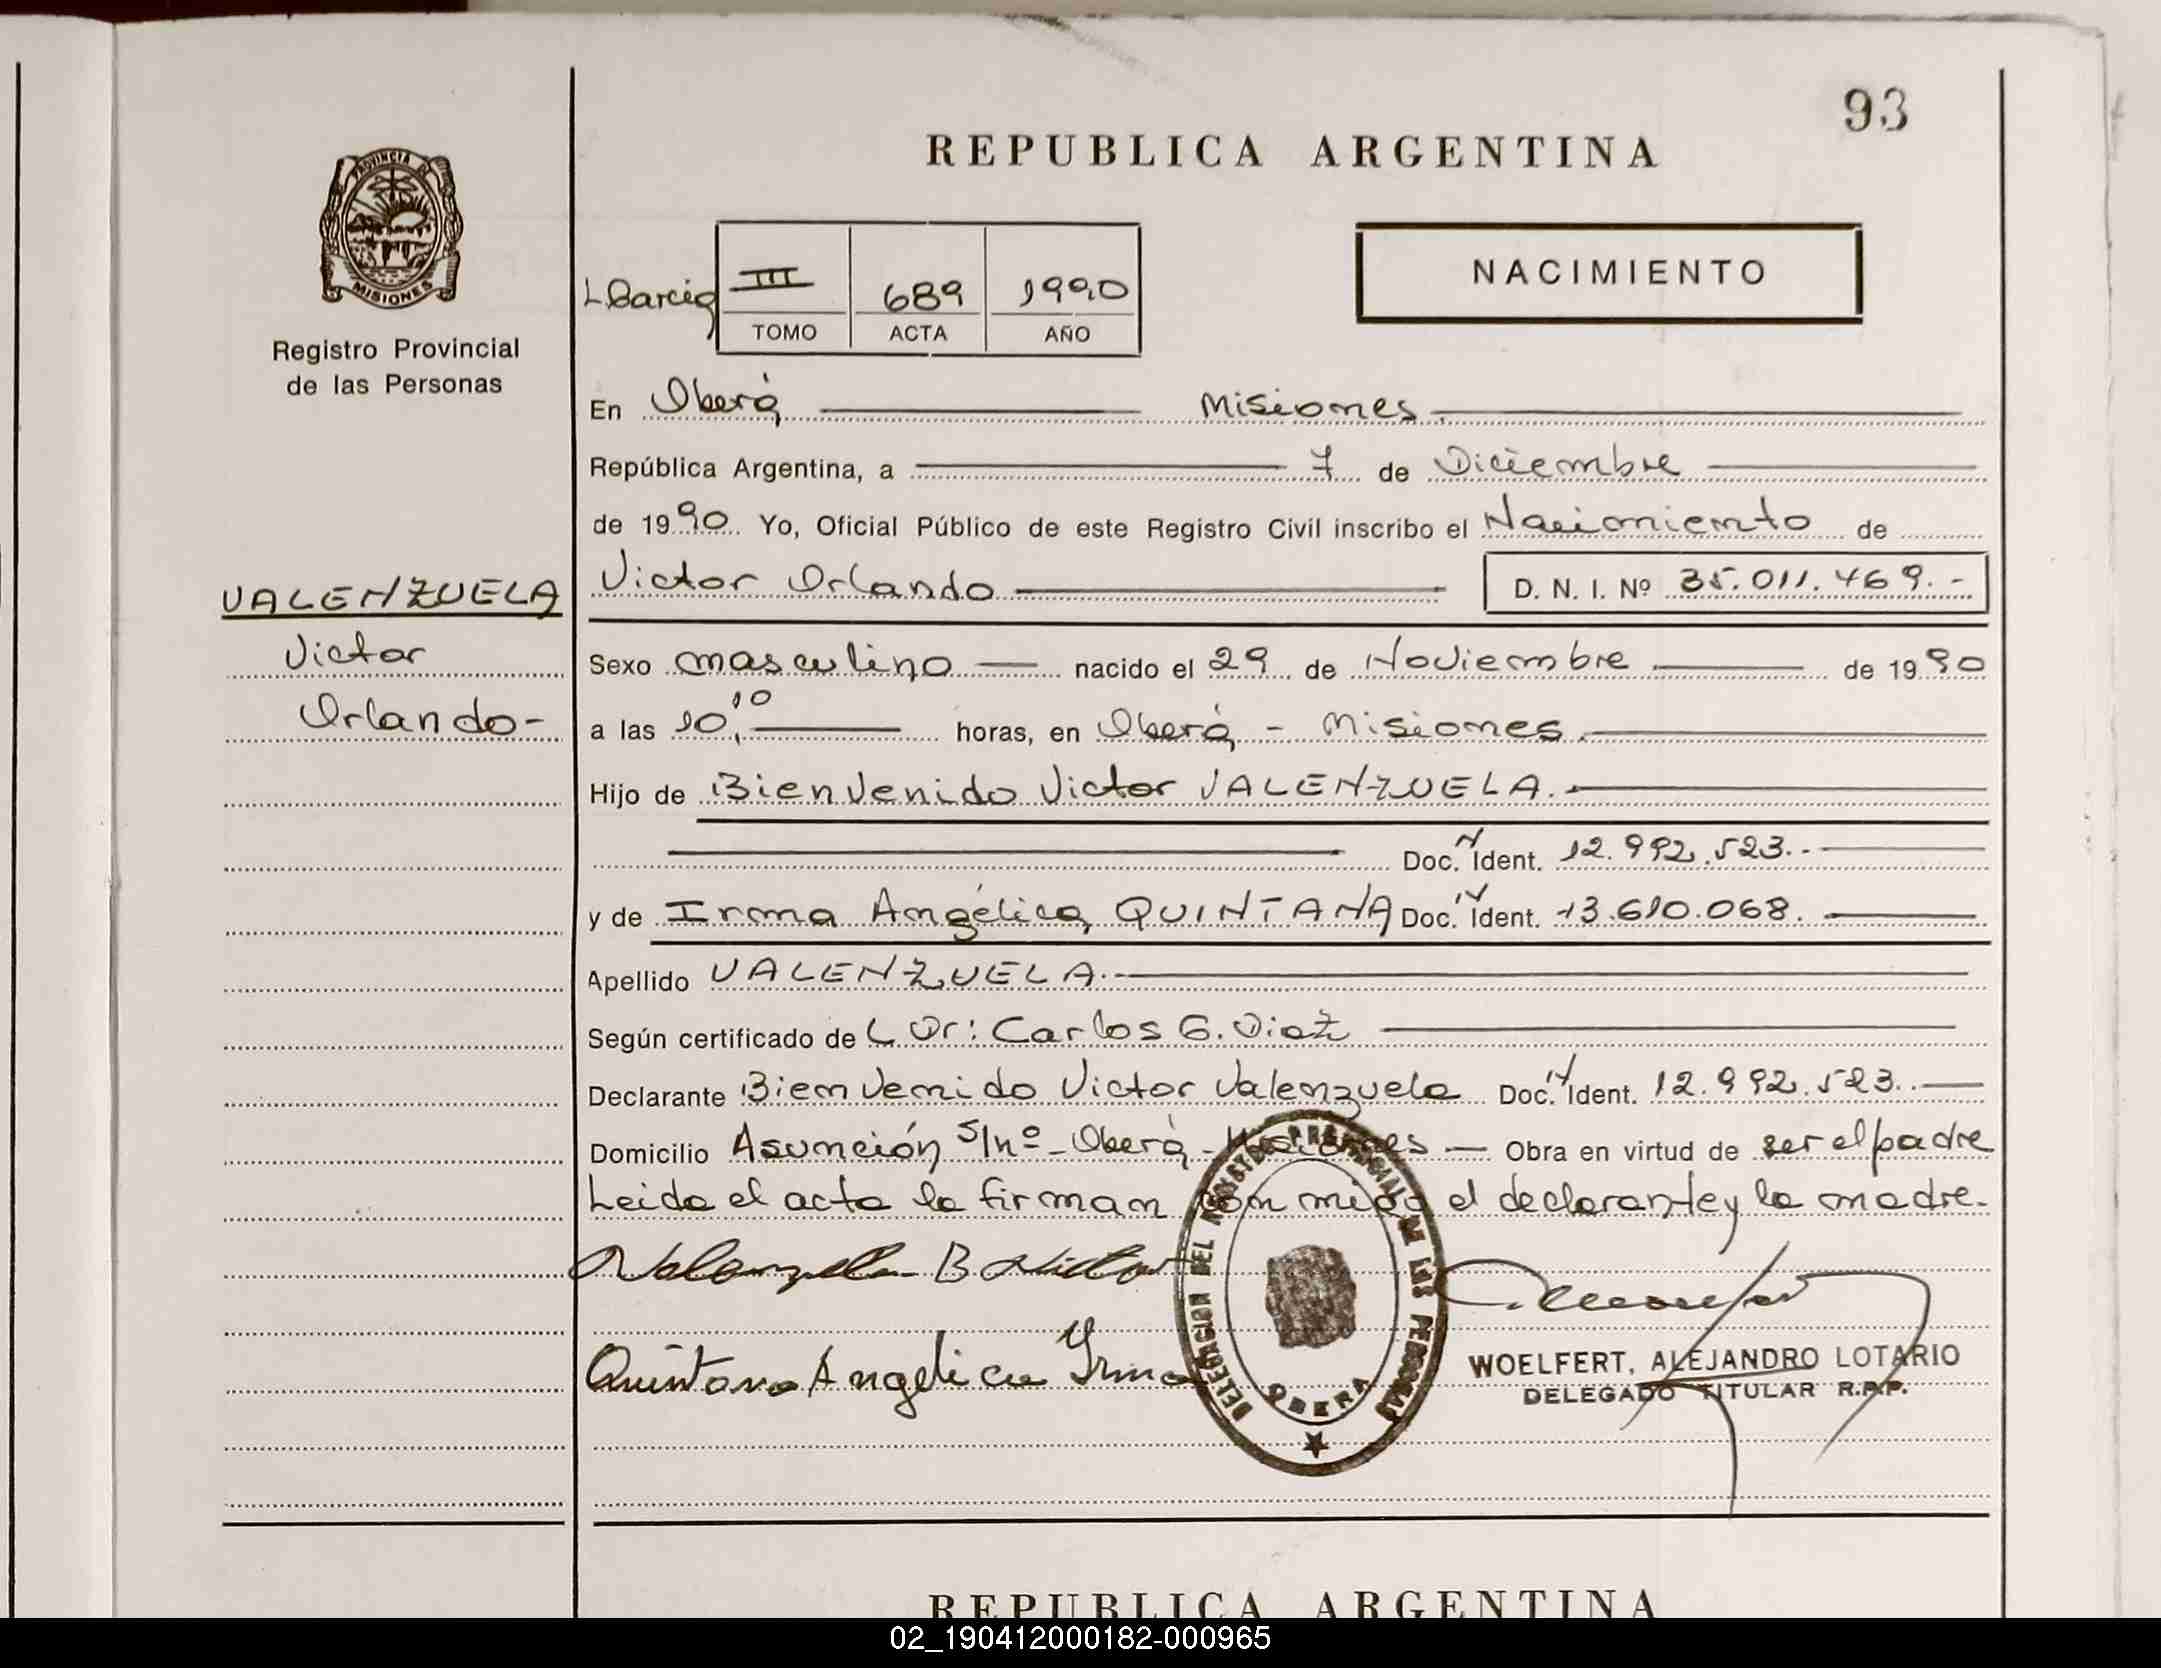 93
REPUBLICA ARGENTINA
PROVINCIA DE
MISIONES
Registro Provincial
de las Personas
III 689 1990
TOMO ACTA AÑO
NACIMIENTO
En Oberá Misiones.
República Argentina, a 7 de Diciembre
de 1990. Yo, Oficial Público de este Registro Civil inscribo el Nacimiento de
Victor Orlando D. N. I. Nº 35.011.469.-
VALENZUELA
Victor
Orlando-
Sexo masculino nacido el 29 de Noviembre de 1990
a las 10,10 horas, en Oberá - Misiones.
Hijo de Bienvenido Victor VALENZUELA.-
Doc. N Ident. 12.992.523.-
y de Irma Angélica QUINTANA Doc. N Ident. 13.610.068.
Apellido VALENZUELA.-
Según certificado de L Dr: Carlos G. Diaz
Declarante Bienvenido Victor Valenzuela Doc. N Ident. 12.992.523.-
Domicilio Asunción s/nº - Oberá - Misiones - Obra en virtud de ser el padre
Leida el acta la firman conmigo el declarante y la madre.-
Valenzuela B Victor
Quintana Angelica Irma
DELEGACION DEL REGISTRO PROVINCIAL DE LAS PERSONAS
OBERA
WOELFERT, ALEJANDRO LOTARIO
DELEGADO TITULAR R.P.P.
REPUBLICA ARGENTINA
02_190412000182-000965